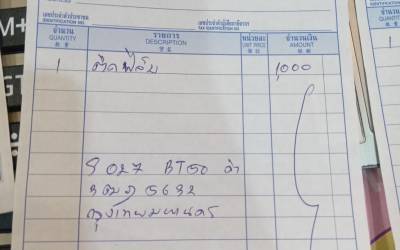 เลขประจำตัวประชาชน
เลขประจำตัวผู้เสียภาษีอากร
จำนวน รายการ หน่วยละ จำนวนเงิน
QUANTITY DESCRIPTION UNIT PRICE AMOUNT
1 ติดฟิล์ม 1,000
BT50 ดำ
5632
กรุงเทพมหานคร